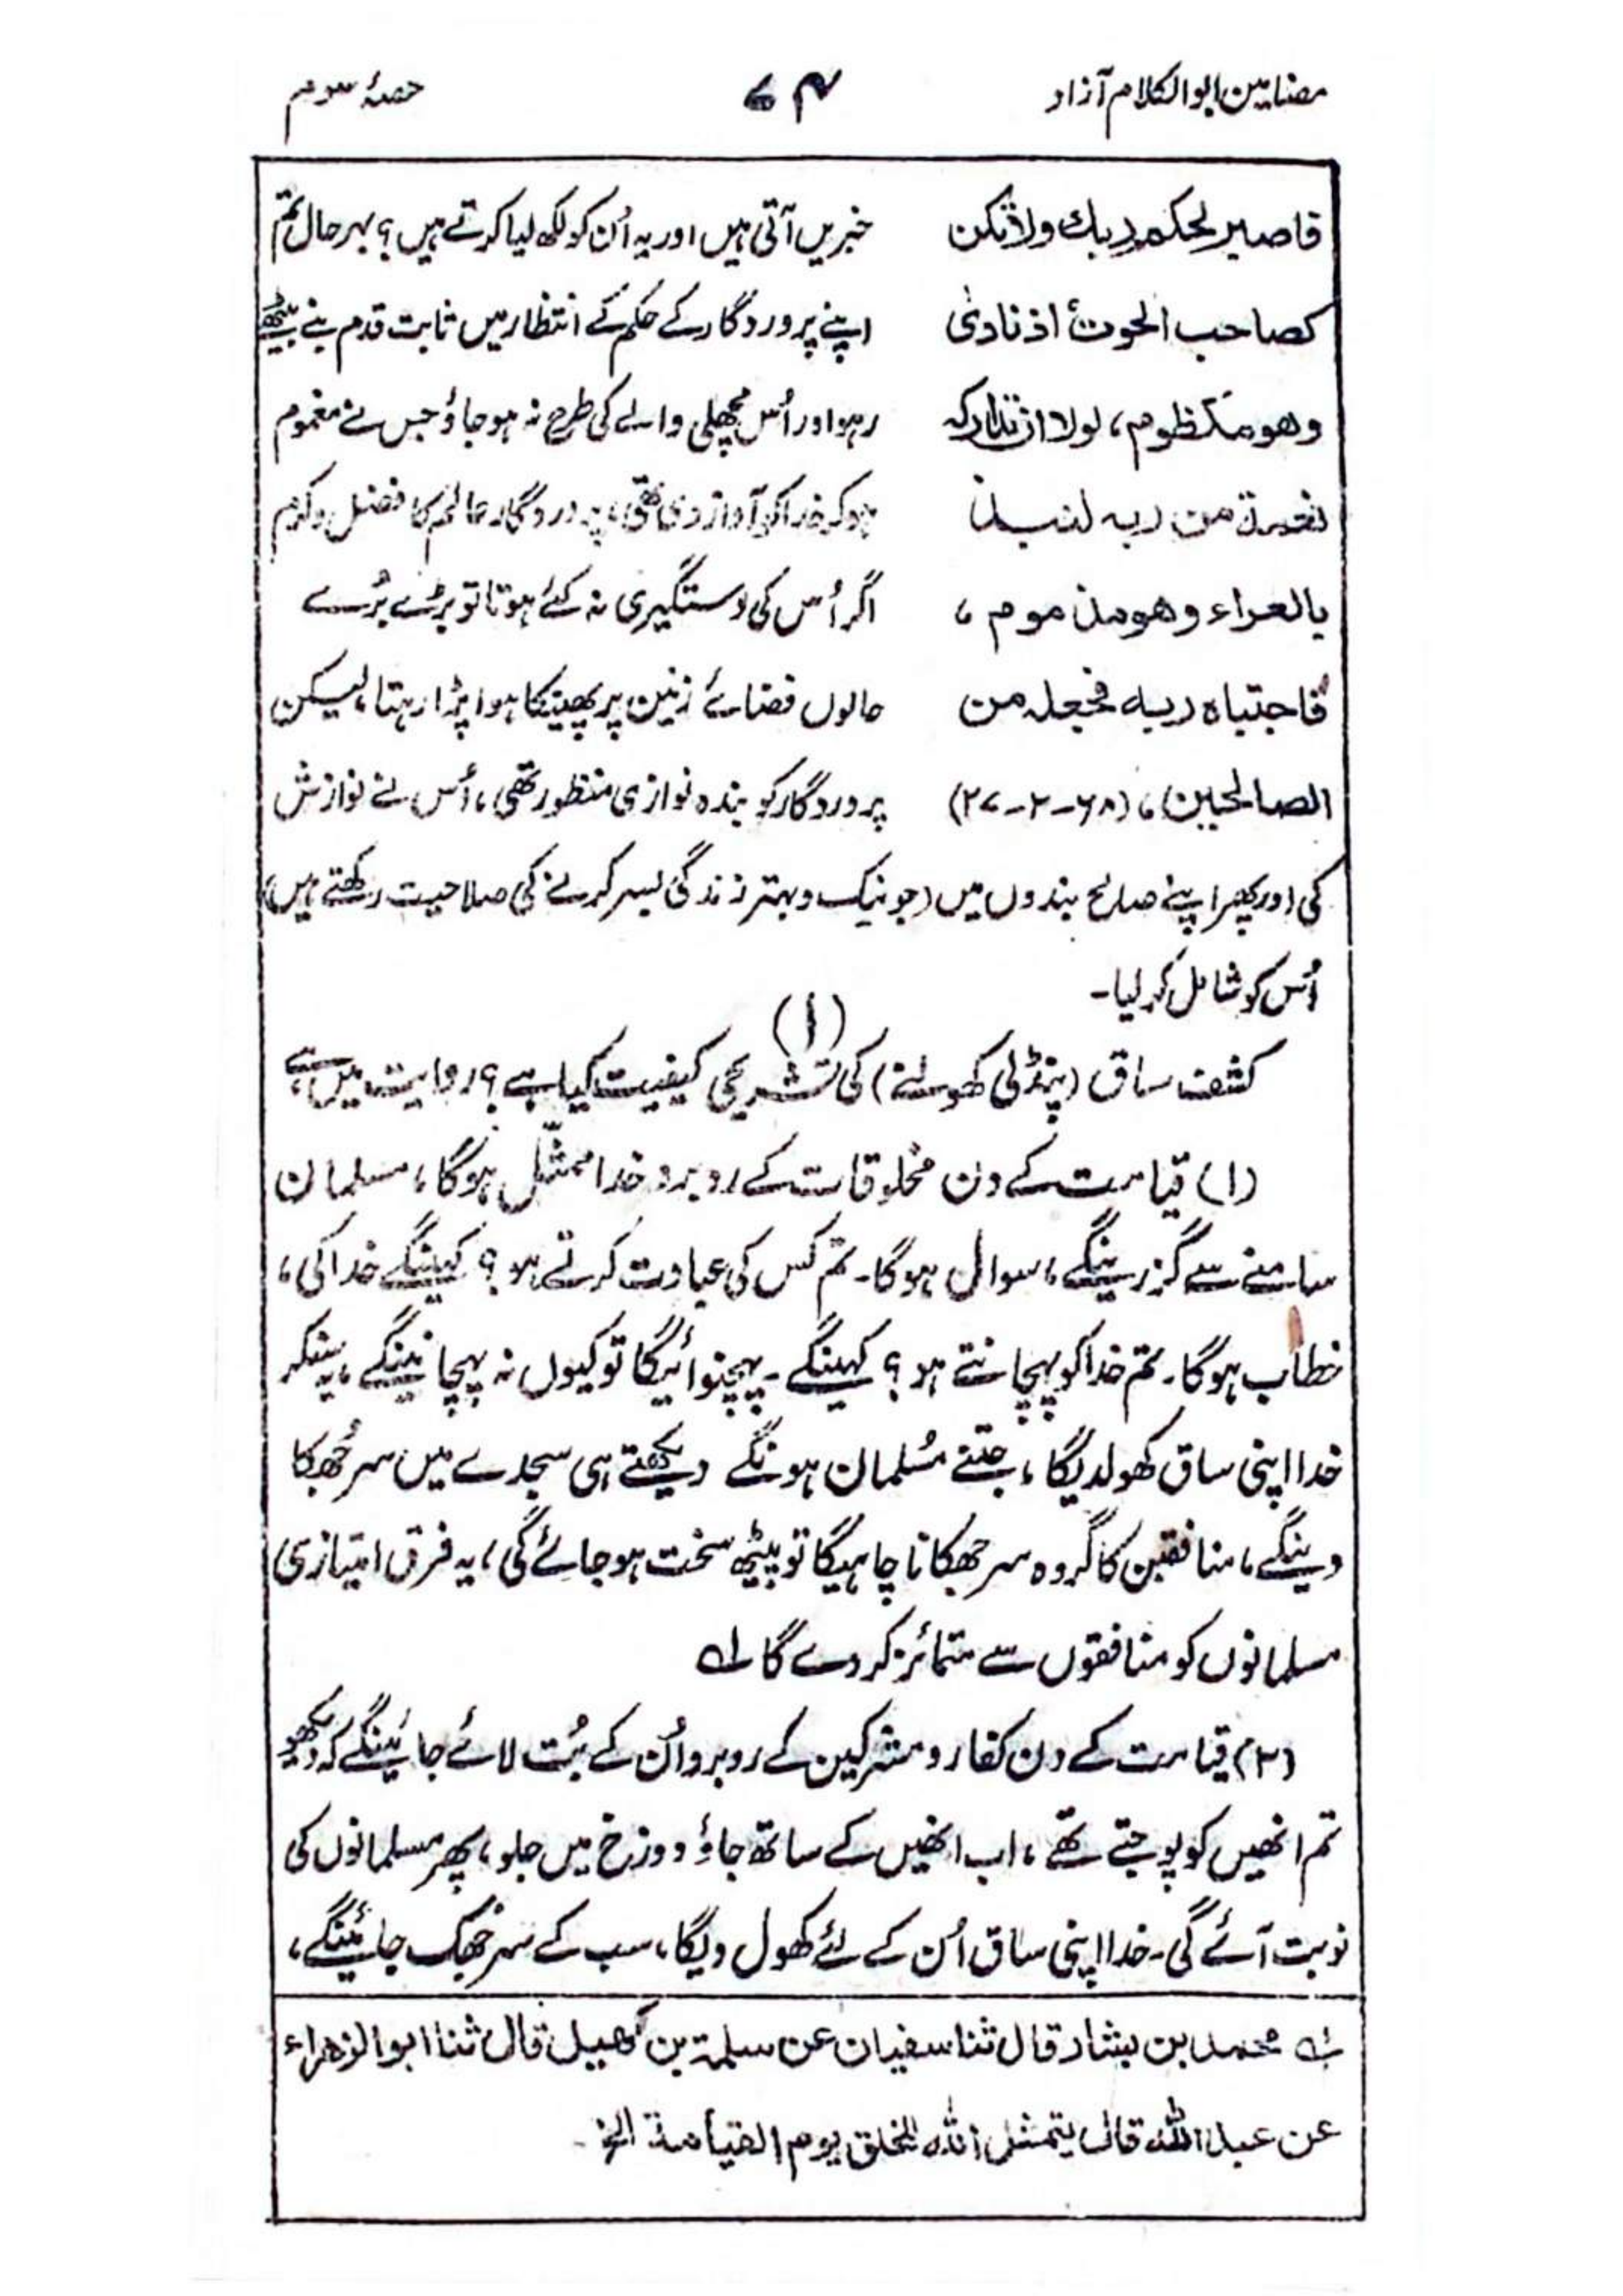 مضامین ابوالکلام آزاد
۷۴
حصۂ سوم
فاصبر لحکم ربك ولا تكن
کصاحب الحوت اذ نادیٰ
وهو مکظوم، لولا ان تدارکہ
نعمۃ من ربہ لنبذ
بالعراء وهو مذموم،
فاجتباہ ربہ فجعلہ من
الصالحین، (۶۸-۲-۲۷)
خبریں آتی ہیں اور یہ اُن کو لکھ لیا کرتے ہیں؟ بہر حال تم
اپنے پروردگار کے حکم کے انتظار میں ثابت قدم بنے بیٹھے
رہو اور اُس مچھلی والے کی طرح نہ ہو جاؤ جس نے مغموم
ہو کر خدا کو آواز دی تھی، پروردگار عالم کا فضل و کرم
اگر اُس کی دستگیری نہ کئے ہوتا تو بڑے بُرے
حالوں فضائے زمین پر پھینکا ہوا پڑا رہتا، لیکن
پروردگار کو بندہ نوازی منظور تھی، اُس نے نوازش
کی اور پھر اپنے صالح بندوں میں (جو نیک و بہتر زندگی بسر کرنے کی صلاحیت رکھتے ہیں)
اُس کو شامل کر لیا۔
(۱)
کشف ساق (پنڈلی کھولنے) کی تشریحی کیفیت کیا ہے؟ روایت میں ہے،
(۱) قیامت کے دن مخلوقات کے روبرو خدا ممثّل ہوگا، مسلمان
سامنے سے گزرینگے، سوال ہوگا۔ تم کس کی عبادت کرتے ہو؟ کہینگے خدا کی،
خطاب ہوگا۔ تم خدا کو پہچانتے ہو؟ کہینگے۔ پہچنوائیگا تو کیوں نہ پہچانینگے، یہ سنکر
خدا اپنی ساق کھولدیگا، جتنے مُسلمان ہونگے دیکھتے ہی سجدے میں سر جُھکا
دینگے، منافقین کا گروہ سر جھکانا چاہیگا تو پیٹھ سخت ہو جائے گی، یہ فرق امتیازی
مسلمانوں کو منافقوں سے متمائز کر دے گا ؎۱
(۲) قیامت کے دن کفار و مشرکین کے روبرو اُن کے بُت لائے جائینگے کہ دیکھو
تم انھیں کو پوجتے تھے، اب انھیں کے ساتھ جاؤ دوزخ میں جلو، پھر مسلمانوں کی
نوبت آئے گی۔ خدا اپنی ساق اُن کے لئے کھول دیگا، سب کے سر جُھک جائینگے،
؎۱ محمد بن بشار قال ثنا سفیان عن سلمۃ بن کھیل قال ثنا ابو الزهراء
عن عبد اللہ قال یتمثل اللہ للخلق یوم القیامۃ الخ۔